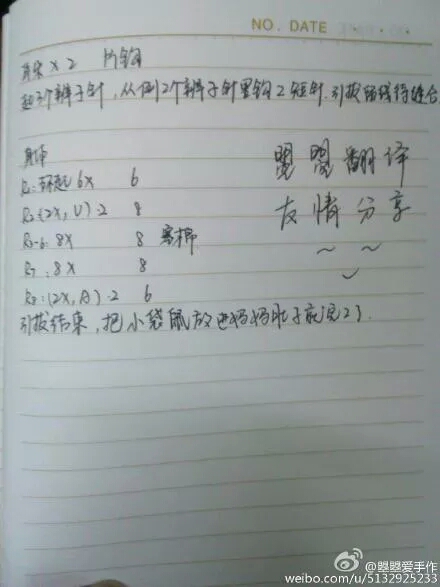 NO. DATE
耳朵×2 片钩
起3个辫子针,从倒2个辫子针里钩2短针.引拔留线待缝合
身体
R1:环起6X 6
R2:(2X,V)·2 8
R3-6:8X 8 塞棉
R7:8X 8
R8:(2X,A)·2 6
引拔结束,把小袋鼠放进妈妈肚子就完工了.
曌曌翻译
友情分享
~ ~
@曌曌爱手作
weibo.com/u/5132925233